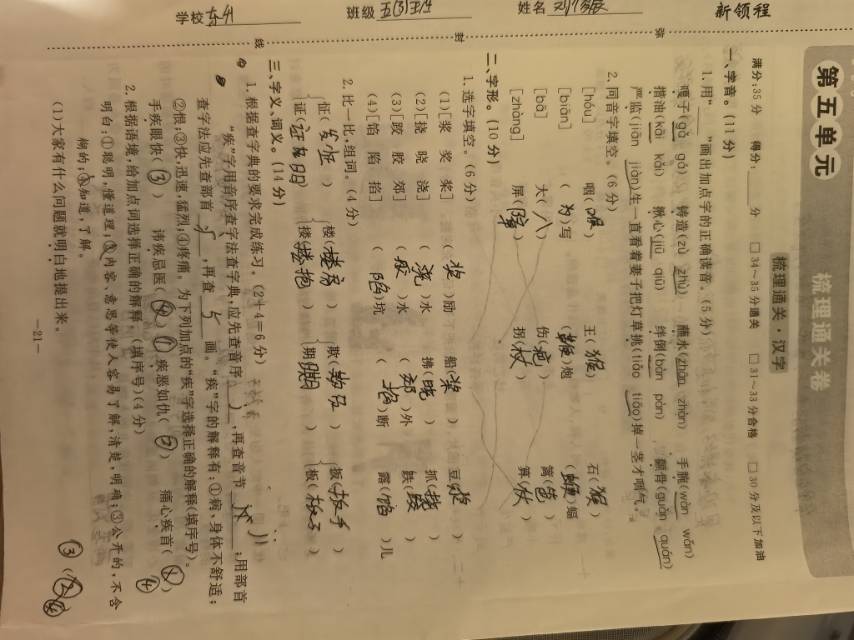 新领程
学校 东外 班级 五(3)班 姓名
弥 封 线
第五单元 梳理通关卷
梳理通关·汉字
满分:35 分 得分: 分 □ 34~35 分通关 □ 31~33 分合格 □ 30 分及以下加油
一、字音。(11 分)
1. 用“ ”画出加点字的正确读音。(5 分)
嘎子(gǎ gá) 铸造(zù zhù) 蘸水(zhān zhàn) 手腕(wàn wǎn)
揩油(kāi kǎi) 揪心(jiū qiū) 绊倒(bàn pàn) 颧骨(quàn quán)
严监(jiān jiàn)生一直看着妻子把灯草挑(tiǎo tiāo)掉一茎才咽气。
2. 同音字填空。(6 分)
[hóu] 咽(喉) 王(猴) 石(猴)
[biān] ( )写 ( )炮 ( )蝠
[bā] 大(八) 伤(疤) 篱(笆)
[zhàng] 屏(障) 拐(杖) 算( )
二、字形。(10 分)
1. 选字填空。(6 分)
(1)[浆 奖 桨] (奖)励 船(桨) 豆(浆)
(2)[挠 晓 浇] (浇)水 拂(晓) 抓(挠)
(3)[胶 胶 郊] (胶)水 (郊)外 跌( )
(4)[馅 陷 掐] (陷)坑 (掐)断 露(馅)儿
2. 比一比,组词。(4 分)
怔(发怔) 楼(楼房) 欺( ) 扳(扳手)
证(证明) 搂(搂抱) 期( ) 板(板子)
三、字义、词义。(14 分)
1. 根据查字典的要求完成练习。(2+4=6 分)
“疾”字用音序查字法查字典,应先查音序 J ,再查音节 jí ;用部首
查字法应先查部首 疒 ,再查 5 画。“疾”字的解释有:①病,身体不舒适;
②恨;③快,迅速,猛烈;④疼痛。为下列加点的“疾”字选择正确的解释(填序号)。
手疾眼快(③) 讳疾忌医( ①) 疾恶如仇(②) 痛心疾首( ) ④
2. 根据语境,给加点词选择正确的解释。(填序号)(4 分)
明白:①聪明,懂道理;②内容、意思等使人容易了解,清楚,明确;③公开的,不含
糊的;④知道,了解。
(1)大家有什么问题就明白地提出来。 ③
—21—